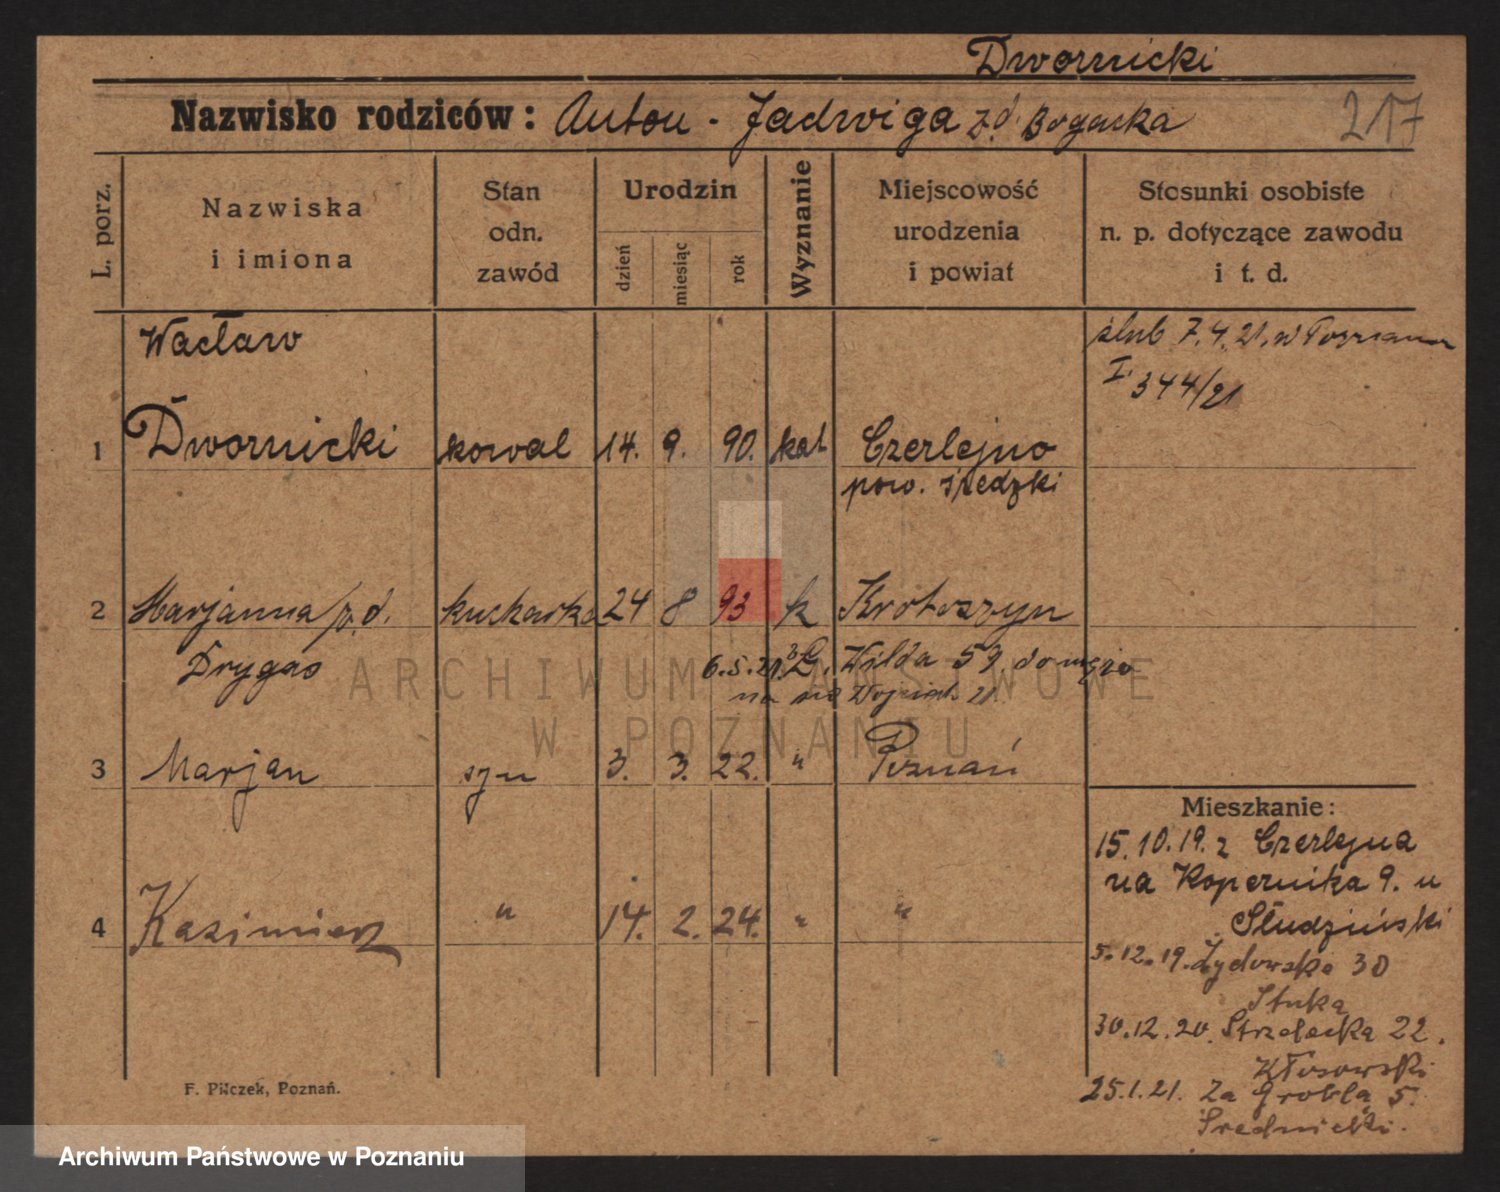 Dwornicki
Nazwisko rodziców: Anton - Jadwiga z d. Bogacka 217
L. porz.
Nazwiska
i imiona
Stan
odn.
zawód
Urodzin
dzień
miesiąc
rok
Wyznanie
Miejscowość
urodzenia
i powiat
Stosunki osobiste
n. p. dotyczące zawodu
i t. d.
Wacław
1 Dwornicki kowal 14. 9. 90. kat Czerlejno
pow. średzki
ślub 7.4.21. w Poznaniu
I. 344/21
2 Marjanna z. d. kucharka 24 8 93 k Krotoszyn
Drygas 6.5.21. Wilda 59. do męża
na Wojciech. 21
3 Marjan syn 3. 3. 22. " Poznań
4 Kazimierz " 14. 2. 24. " "
Mieszkanie:
15.10.19. z Czerlejna
na Kopernika 9. u
Słudziński
5.12.19. Żydowska 30
Stuką
30.12.20. Strzelecka 22.
Kłosowski
25.1.21. Za Groblą 5.
Średnicki.
F. Pilczek, Poznań.
ARCHIWUM PAŃSTWOWE
W POZNANIU
Archiwum Państwowe w Poznaniu